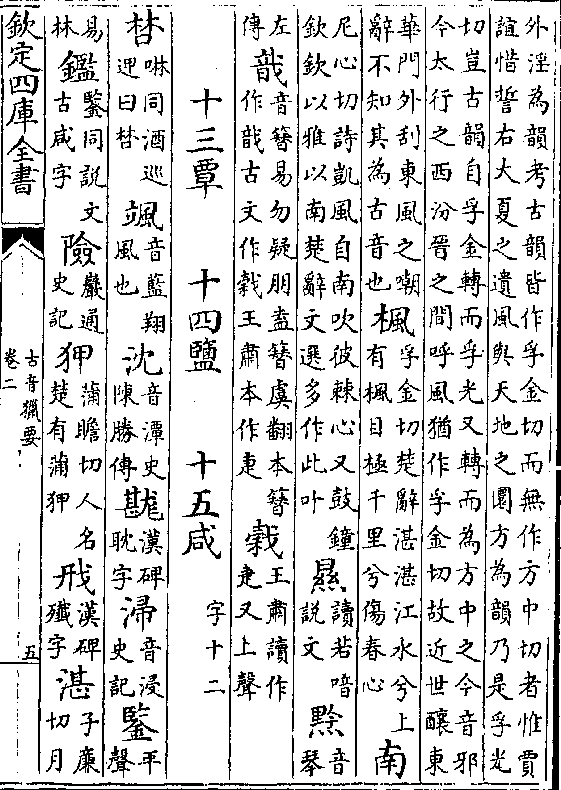 外淫為韻考古韻皆作孚金切而無作方中切者惟賈
誼惜誓右大夏之遺風與天地之圜方為韻乃是孚光
切豈古韻自孚金轉而孚光又轉而為方中之今音邪
今太行之西汾晉之間呼風猶作孚金切故近世釀東
華門外刮東風之嘲
辭不知其為古音也
楓
孚金切楚辭湛湛江水兮上
有楓目極千里兮傷春心
南
尼心切詩凱風自南吹彼棘心又鼓鐘
欽欽以雅以南楚辭文選多作此叶
㬎
讀若喑
說文
黔
音
琴
左
傳
戠
音簪易勿疑朋盍簪虞翻本簪
作戠古文作王肅本作疌
王肅讀作
疌又上聲
十三覃 十四鹽 十五咸 字十二
啉同酒巡
迊曰
颯
音藍翔
風也
沈
音潭史
陳勝傳
漢碑
耽字
音浸
史記
鑒
平
聲
易
林
鑑
鑒同說文
古咸字
險
巖通
史記
狎
蒲瞻切人名
楚有蒲狎
漢碑
殲字
湛
子廉
切月
欽定四庫全書
古音獵要
卷二
五